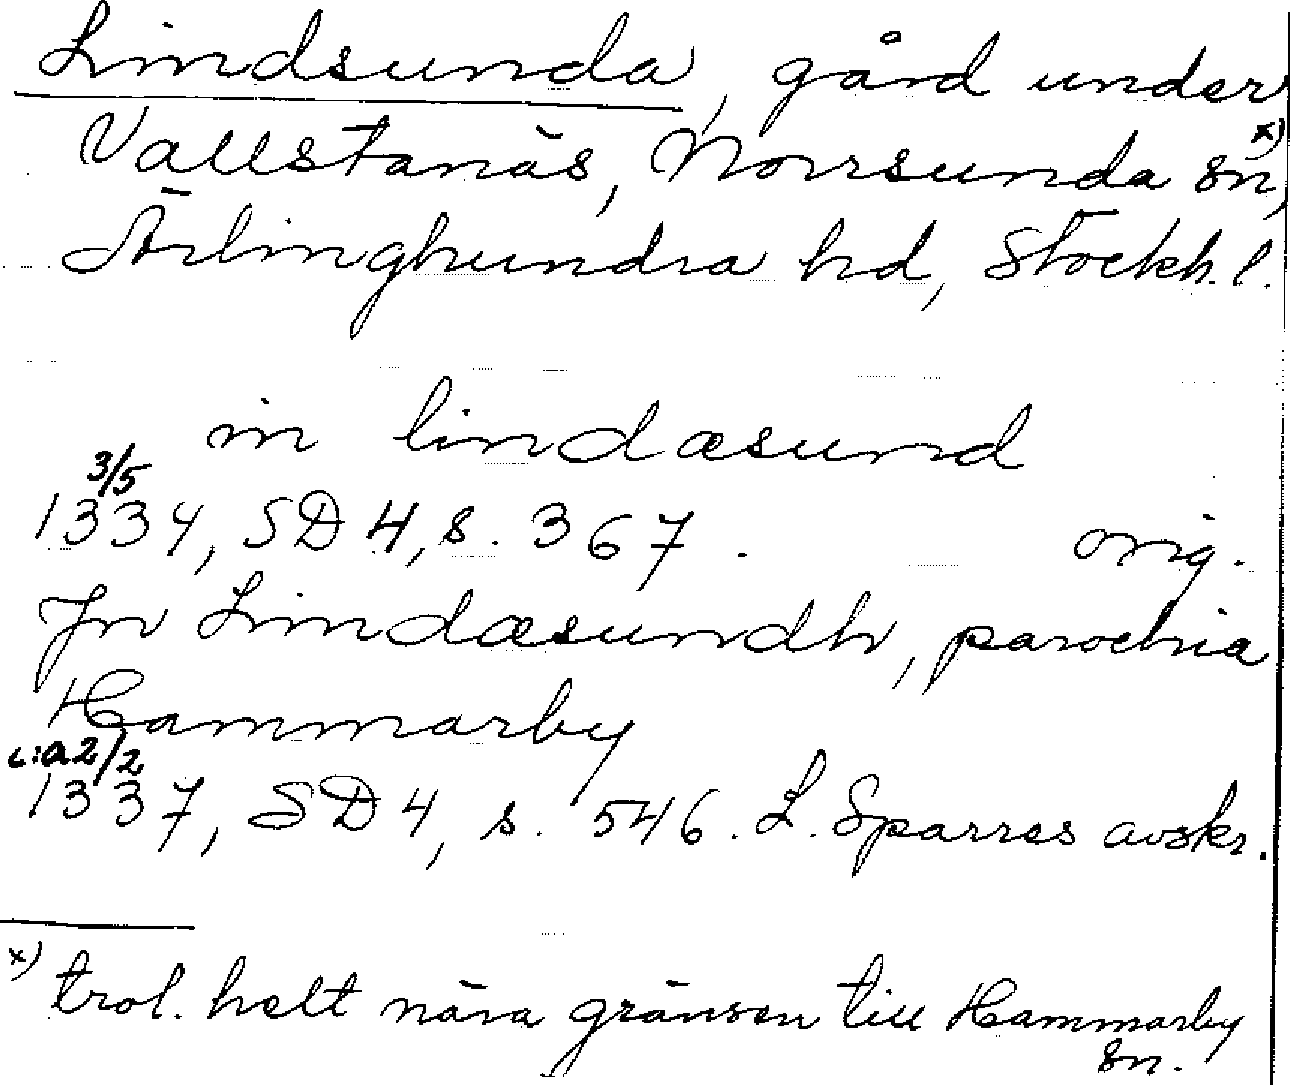 Lindsunda, gård under
Vallstanäs, Norrsunda sn, x)
Ärlinghundra hd, Stockh. l.
in lindæsund
3/5
1334, SD 4, s. 367. orig.
Jn Lindæsundh, parochia
Hammarby
c:a 2/2
1337, SD 4, s. 546. L. Sparres avskr.
x) trol. helt nära gränsen till Hammarby
sn.